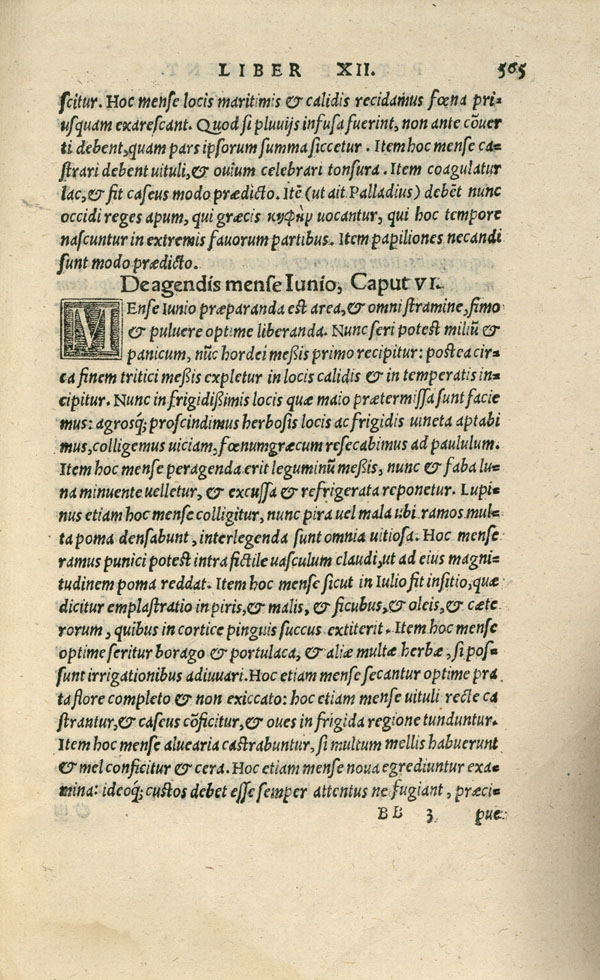 LIBER XII. 565
scitur. Hoc mense locis maritimis & calidis recidamus fœna pri-
usquam exarescant. Quod si pluuijs infusa fuerint, non ante cōuer
ti debent, quam pars ipsorum summa siccetur. Item hoc mense ca-
strari debent uituli, & ouium celebrari tonsura. Item coagulatur
lac, & fit caseus modo prædicto. Itē (ut ait Palladius) debēt nunc
occidi reges apum, qui græcis κηφὴν uocantur, qui hoc tempore
nascuntur in extremis fauorum partibus. Item papiliones necandi
sunt modo prædicto.
De agendis mense Iunio, Caput VI.
MEnse Iunio præparanda est area, & omni stramine, fimo
& puluere optime liberanda. Nunc seri potest miliū &
panicum, nūc hordei meßis primo recipitur: postea cir-
ca finem tritici meßis expletur in locis calidis & in temperatis in-
cipitur. Nunc in frigidißimis locis quæ maio prætermissa sunt facie
mus: agrosq́; proscindimus herbosis locis ac frigidis uineta aptabi
mus, colligemus uiciam, fœnumgræcum resecabimus ad paululum.
Item hoc mense peragenda erit leguminū meßis, nunc & faba lu-
na minuente uelletur, & excussa & refrigerata reponetur. Lupi-
nus etiam hoc mense colligitur, nunc pira uel mala ubi ramos mul-
ta poma densabunt, interlegenda sunt omnia uitiosa. Hoc mense
ramus punici potest intra fictile uasculum claudi, ut ad eius magni-
tudinem poma reddat. Item hoc mense sicut in Iulio fit insitio, quæ
dicitur emplastratio in piris, & malis, & ficubus, & oleis, & cæte
rorum, quibus in cortice pinguis succus extiterit. Item hoc mense
optime seritur borago & portulaca, & aliæ multæ herbæ, si pos-
sunt irrigationibus adiuuari. Hoc etiam mense secantur optime pra
ta flore completo & non exiccato: hoc etiam mense uituli recte ca
strantur, & caseus cōficitur, & oues in frigida regione tunduntur.
Item hoc mense aluearia castrabuntur, si multum mellis habuerunt
& mel conficitur & cera. Hoc etiam mense noua egrediuntur exa-
mina: ideoq́; custos debet esse semper attentus ne fugiant, præci-
BB 3 pue